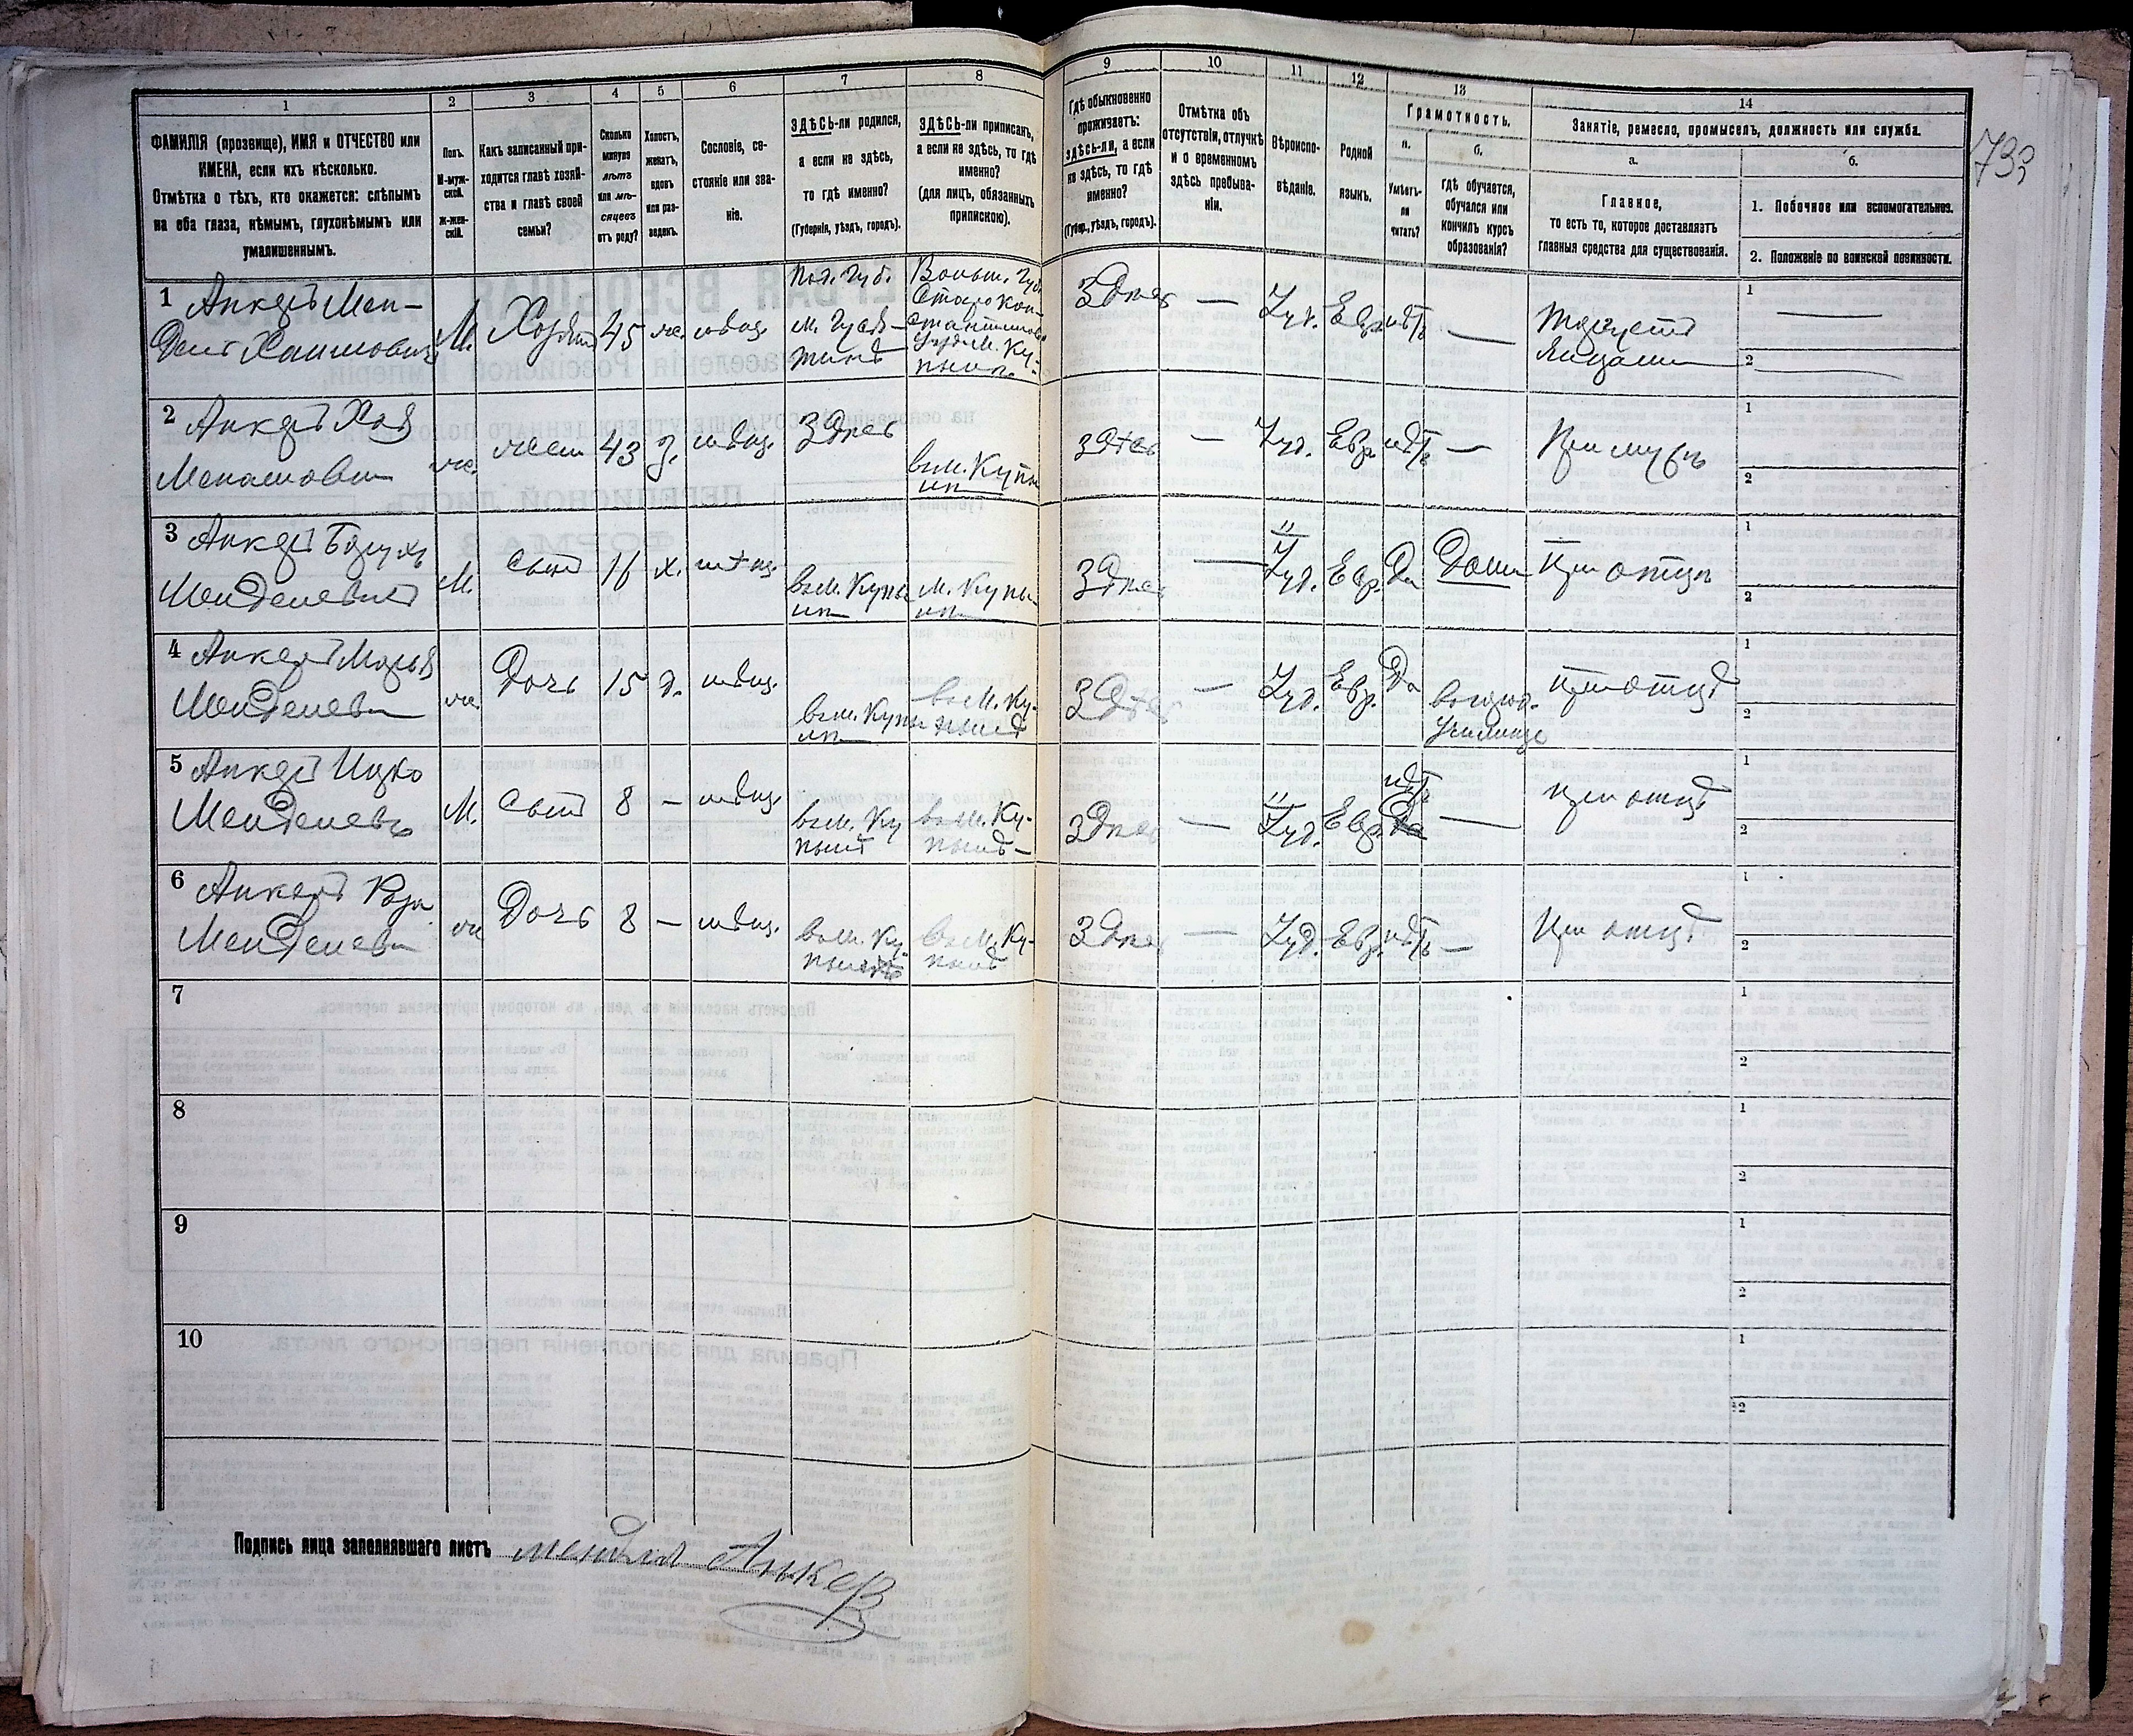 1
2
3
4
5
6
7
8
9
10
11
12
13
14
ФАМИЛІЯ (прозвище), ИМЯ и ОТЧЕСТВО или
ИМЕНА, если ихъ нѣсколько.
Отмѣтка о тѣхъ, кто окажется: слѣпымъ
на оба глаза, нѣмымъ, глухонѣмымъ или
умалишеннымъ.
Полъ.
М-муж-
ской.
Ж-жен-
скій.
Какъ записанный при-
ходится главѣ хозяй-
ства и главѣ своей
семьи?
Сколько
минуло
лѣтъ
или мѣ-
сяцевъ
отъ роду?
Холостъ,
женатъ,
вдовъ
или раз-
веденъ.
Сословіе, со-
стояніе или зва-
ніе.
ЗДѢСЬ-ли родился,
а если не здѣсь,
то гдѣ именно?
(Губернія, уѣздъ, городъ).
ЗДѢСЬ-ли приписанъ,
а если не здѣсь, то гдѣ
именно?
(для лицъ, обязанныхъ
припискою).
Гдѣ обыкновенно
проживаетъ:
здѣсь-ли, а если
не здѣсь, то гдѣ
именно?
(Губер., уѣздъ, городъ).
Отмѣтка объ
отсутствіи, отлучкѣ
и о временномъ
здѣсь пребыва-
ніи.
Вѣроиспо-
вѣданіе.
Родной
языкъ.
Грамотность.
а.
Умѣетъ-
ли
читать?
б.
гдѣ обучается,
обучался или
кончилъ курсъ
образованія?
Занятіе, ремесло, промыселъ, должность или служба.
а.
Главное,
то есть то, которое доставляетъ
главныя средства для существованія.
б.
1. Побочное или вспомогательное.
2. Положеніе по воинской повинности.
733
1 Анкеръ Мен-
дель Хаимовичъ
М.
45
ж.
мѣщ.
Под. Губ.
Волын. Губ.
Старокон-
стантинов
м. Ку-
пынъ
Здѣсь
—
Іуд.
Евр.
нѣтъ
—
1
2
2 Анкеръ Хая
ж.
жена
43
З.
мѣщ.
Здѣсь
въ м. Купы
нъ
Здѣсь
—
Іуд.
Евр.
нѣтъ
—
При мужѣ
1
2
3 Анкеръ Борухъ
Менделевичъ
М.
Сынъ
16
х.
мѣщ.
въ м. Купы
нъ
м. Купы
нъ
Здѣсь
—
Іуд.
Евр.
Да
Дома
При отцѣ
1
2
4 Анкеръ
Менделев
ж.
Дочь
15
д.
мѣщ.
въ м. Купы
нъ
въ м. Ку-
пынѣ
Здѣсь
—
Іуд.
Евр.
Да
Училище
при отцѣ
1
2
5 Анкеръ Ицко
Менделевъ
М.
Сынъ
8
—
мѣщ.
въ м. Ку
пынѣ
въ м. Ку-
пынѣ
Здѣсь
—
Іуд.
Евр.
нѣтъ
Да
—
при отцѣ
1
2
6 Анкеръ Роза
Менделев
ж
Дочь
8
—
мѣщ.
въ м. Ку
пынѣ
въ м. Ку-
пынѣ
Здѣсь
—
Іуд.
Евр.
нѣтъ
—
При отцѣ
1
2
7
1
2
8
1
2
9
1
2
10
1
2
Подпись лица заполнявшаго листъ Менделъ Анкеръ